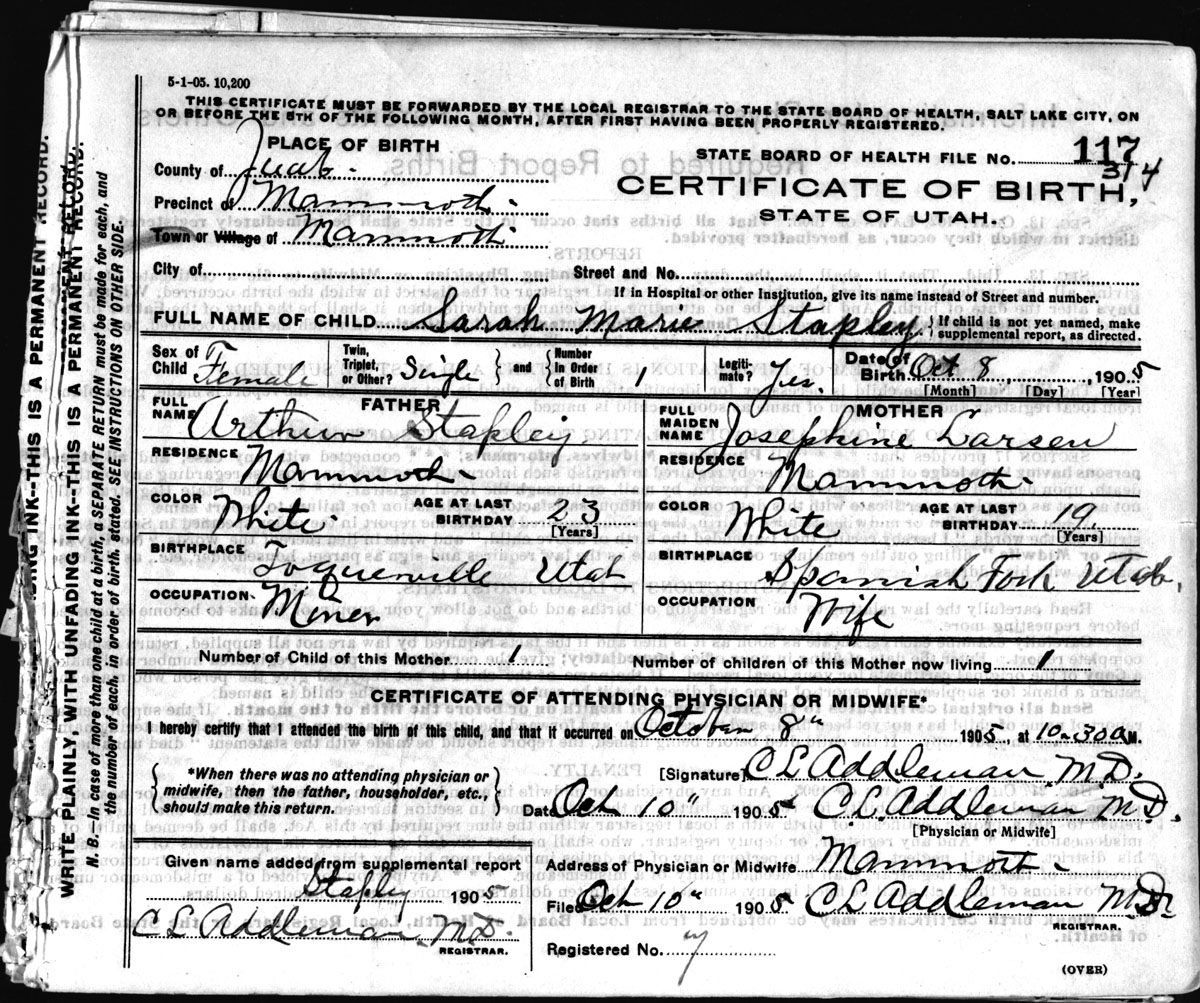 5-1-05. 10,200
THIS CERTIFICATE MUST BE FORWARDED BY THE LOCAL REGISTRAR TO THE STATE BOARD OF HEALTH, SALT LAKE CITY, ON
OR BEFORE THE 5TH OF THE FOLLOWING MONTH, AFTER FIRST HAVING BEEN PROPERLY REGISTERED.
PLACE OF BIRTH
County of Juab.
Precinct of Mammoth.
Town or Village of Mammoth
City of
STATE BOARD OF HEALTH FILE NO. 117
314
CERTIFICATE OF BIRTH,
STATE OF UTAH.
Street and No.
If in Hospital or other Institution, give its name instead of Street and number.
FULL NAME OF CHILD Sarah Marie Stapley { If child is not yet named, make
supplemental report, as directed.
Sex of Child Female
Twin, Triplet, or Other? Single
and
Number In Order of Birth 1
Legiti-mate? Yes.
Date of Birth Oct 8, 1905
[Month] [Day] [Year]
FATHER
FULL NAME Arthur Stapley
RESIDENCE Mammoth.
COLOR White. AGE AT LAST BIRTHDAY 23
[Years]
BIRTHPLACE Toquerville Utah
OCCUPATION Miner
MOTHER
FULL MAIDEN NAME Josephine Larsen
RESIDENCE Mammoth.
COLOR White AGE AT LAST BIRTHDAY 19.
[Years]
BIRTHPLACE Spanish Fork Utah,
OCCUPATION Wife
Number of Child of this Mother 1 Number of children of this Mother now living 1
CERTIFICATE OF ATTENDING PHYSICIAN OR MIDWIFE*
I hereby certify that I attended the birth of this child, and that it occurred on October 8" 1905, at 10-30 a M.
{ *When there was no attending physician or
midwife, then the father, householder, etc.,
should make this return. }
[Signature] C L Addleman M.D.
Date Oct 10" 1905 C.L. Addleman M.D.
[Physician or Midwife]
Given name added from supplemental report
Stapley 1905
C L Addleman M.D.
REGISTRAR.
Address of Physician or Midwife Mammoth
Filed Oct 10" 1905 C L Addleman M.D.
REGISTRAR.
Registered No. 7
(OVER)
WRITE PLAINLY, WITH UNFADING INK--THIS IS A PERMANENT RECORD.
N. B.--In case of more than one child at a birth, a SEPARATE RETURN must be made for each, and
the number of each, in order of birth, stated. SEE INSTRUCTIONS ON OTHER SIDE.
ING INK--THIS IS A PERMANENT RECORD.